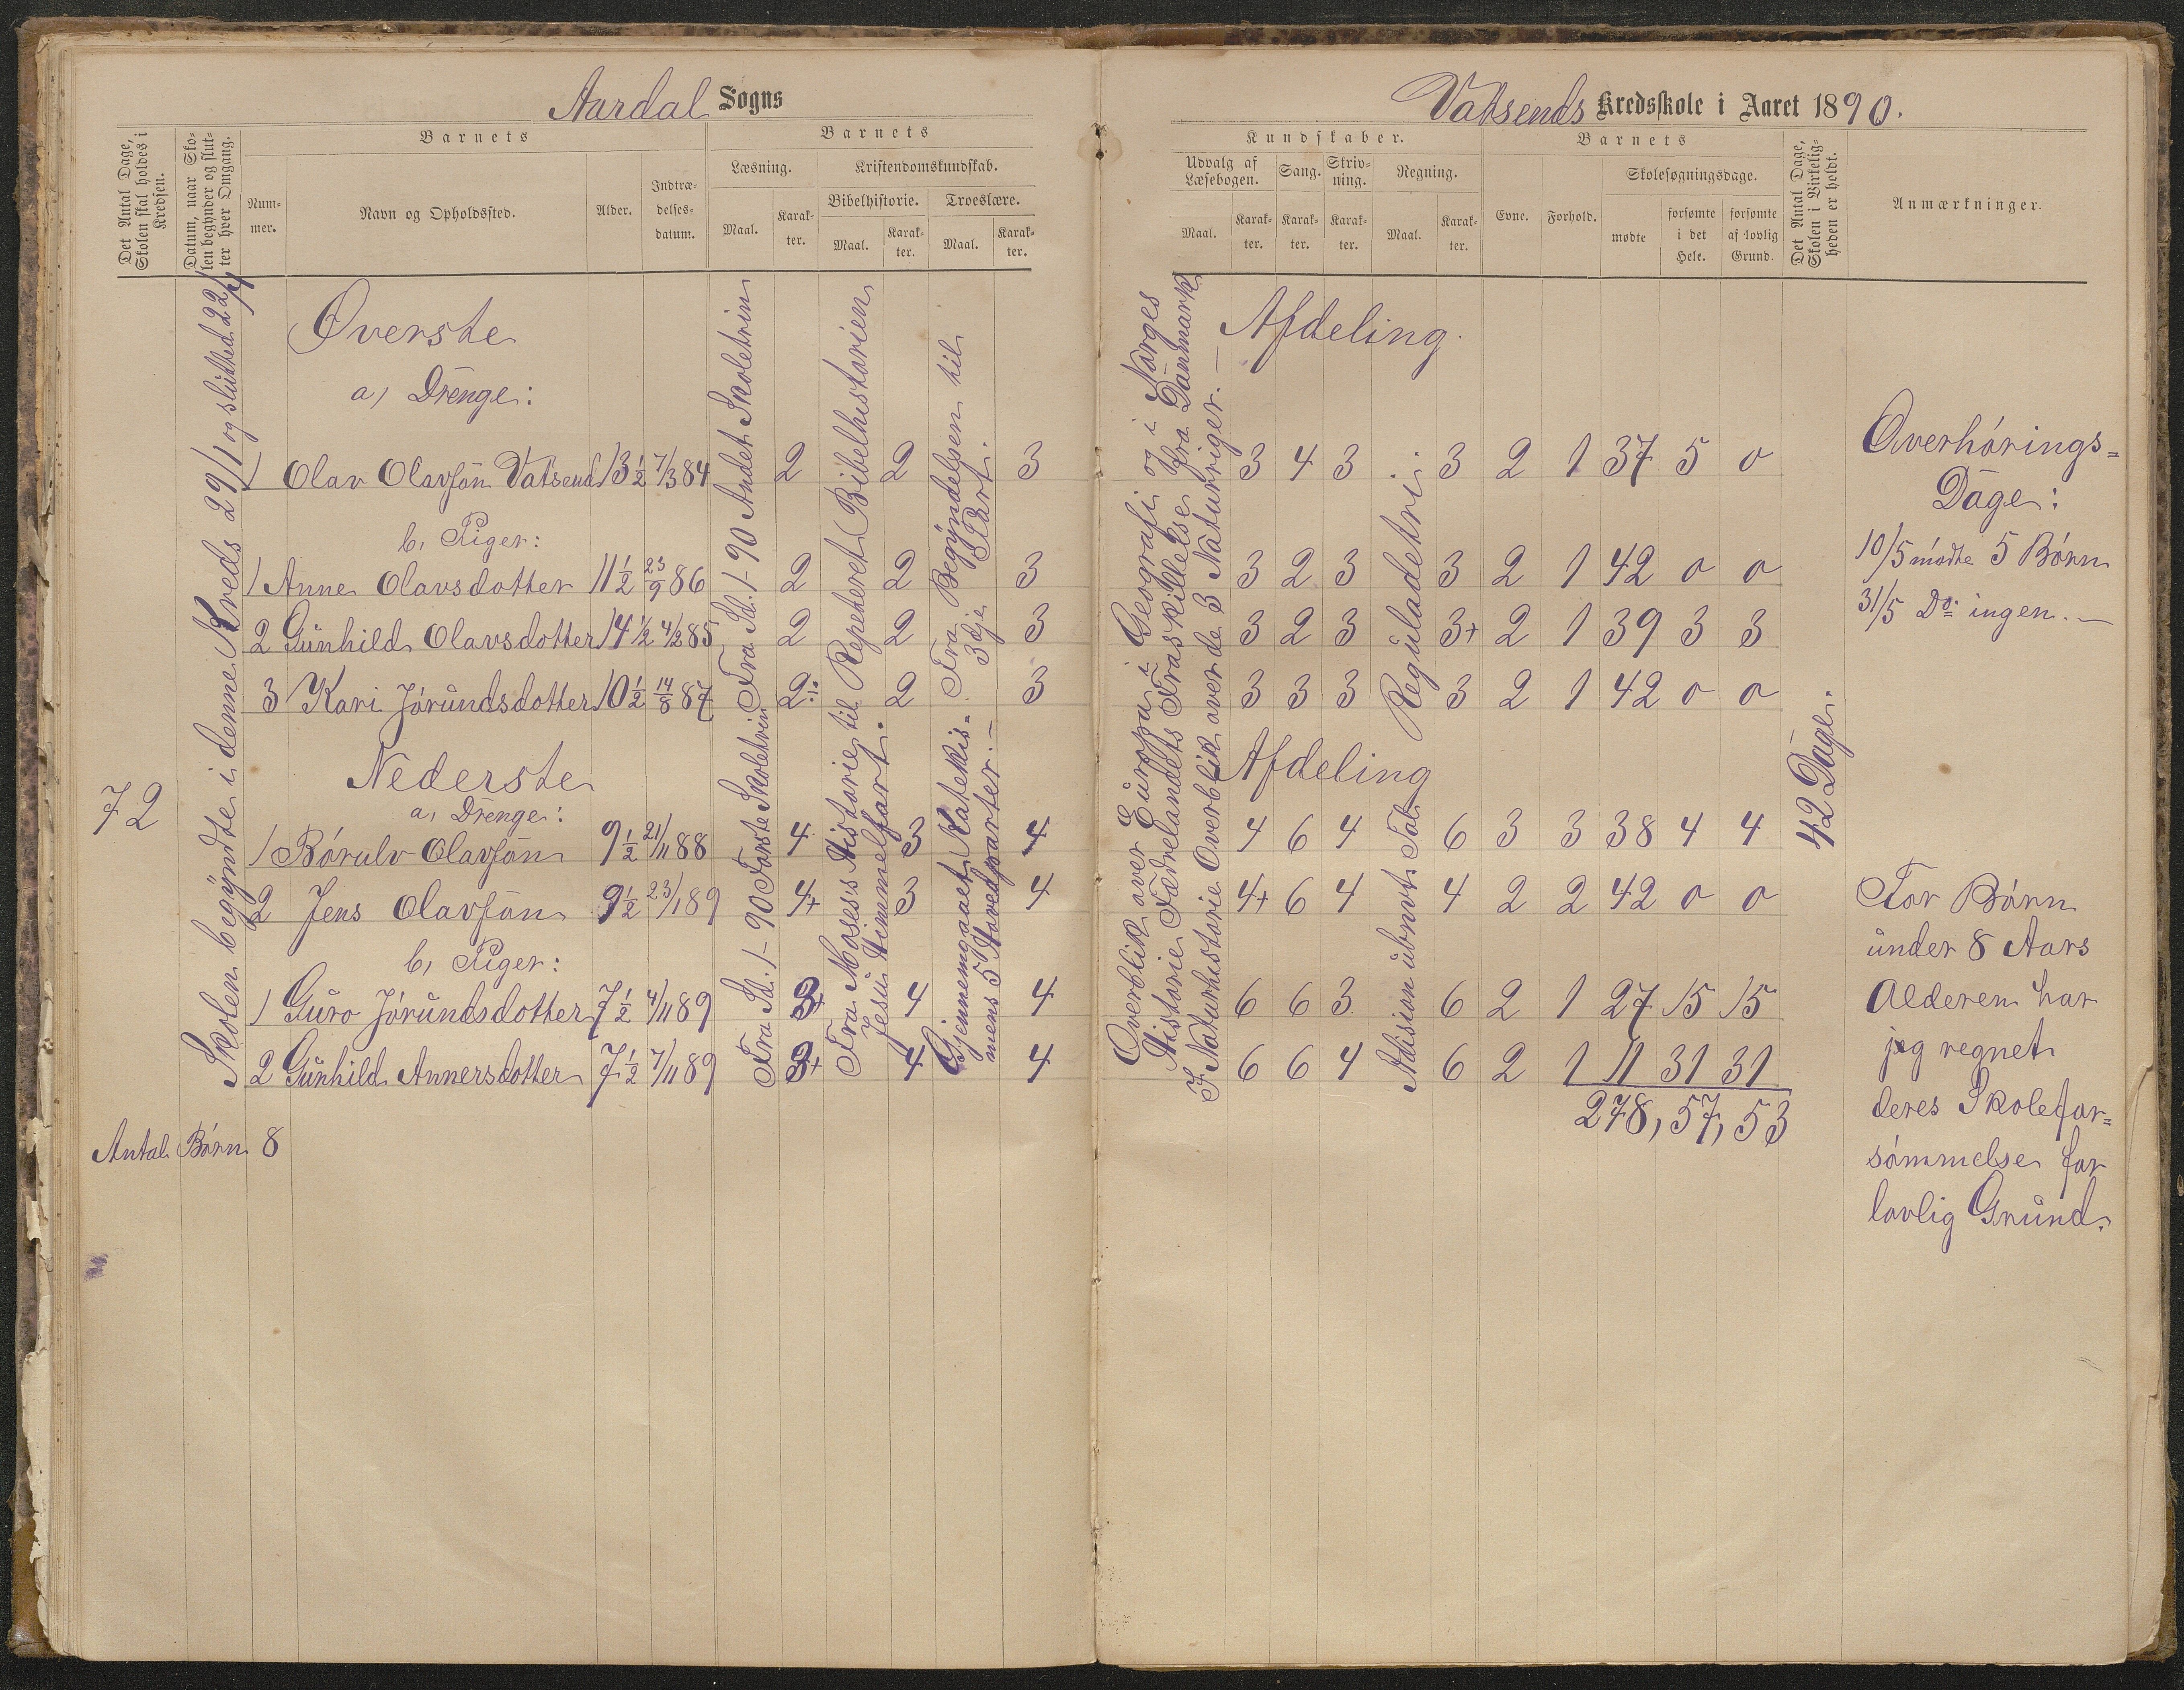 Aardal Sogns
Det Antal Dage, Skolen skal holdes i Kredsen.
Datum, naar Skolen begynder og slutter hver Omgang.
Barnets
Nummer.
Navn og Opholdssted.
Alder.
Indtrædelsesdatum.
Barnets
Læsning.
Maal.
Karakter.
Kristendomskundskab.
Bibelhistorie.
Maal.
Karakter.
Troeslære.
Maal.
Karakter.
72
Skolen begyndte i denne Kreds 29/1 og sluttede 22/4
Øverste
a) Drenge:
1 Olav Olavsøn Vatsend 13 1/2 7/3 84 2 2 3
b, Piger:
1 Anne Olavsdotter 11 1/2 23/9 86 2 2 3
2 Gunhild Olavsdotter 14 1/2 4/2 85 2 2 3
3 Kari Jörundsdotter 10 1/2 14/8 87 2÷ 2 3
Nederste
a, Drenge:
1 Börulv Olavsön 9 1/2 21/11 88 4 3 4
2 Jens Olavsön 9 1/2 23/1 89 4+ 3 4
b, Piger:
1 Guro Jörundsdotter 7 1/2 4/11 89 3+ 4 4
2 Gunhild Annersdotter 7 1/2 7/11 89 3+ 4 4
Fra Sd. 1–90 Andet Skoletrin
Fra Sd. 1–90 Förste Skoletrin
Repeteret Bibelhistorien
Fra Moses's Historie til Jesu Himmelfart.
Fra Begyndelsen til 3dje Part.
Gjennemgaaet Katekismens 5 Hovedparter.–
Antal Börn 8
Vatsends Kredsskole i Aaret 1890.
Kundskaber.
Udvalg af Læsebogen.
Maal.
Karakter.
Sang.
Karakter.
Skrivning.
Karakter.
Regning.
Maal.
Karakter.
Barnets
Evne.
Forhold.
Skolesøgningsdage.
mødte
forsømte i det Hele.
forsømte af lovlig Grund.
Det Antal Dage, Skolen i Virkeligheden er holdt.
Anmærkninger.
Overblik over Europa i Geografi og i Norges
Historie Fædrelandets Fraskillelse fra Danmark
I Naturhistorie Overblik over de 3 Naturriger.–
Afdeling.
3 4 3 3 2 1 37 5 0
3 2 3 3 2 1 42 0 0
3 2 3 3+ 2 1 39 3 3
3 3 3 3 2 1 42 0 0
Reguladetri
Afdeling
4 6 4 6 3 3 38 4 4
4+ 6 4 4 2 2 42 0 0
6 6 3 6 2 1 27 15 15
6 6 4 6 2 1 11 31 31
278, 57, 53
Adision ubnvt Tal
42 Dage.
Overhörings=
Dage:
10/5 mödte 5 Börn
31/5 Do: ingen.–
For Börn
under 8 Aars
Alderen har
jeg regnet
deres Skolefor=
sömmelse for
lovlig Grund.